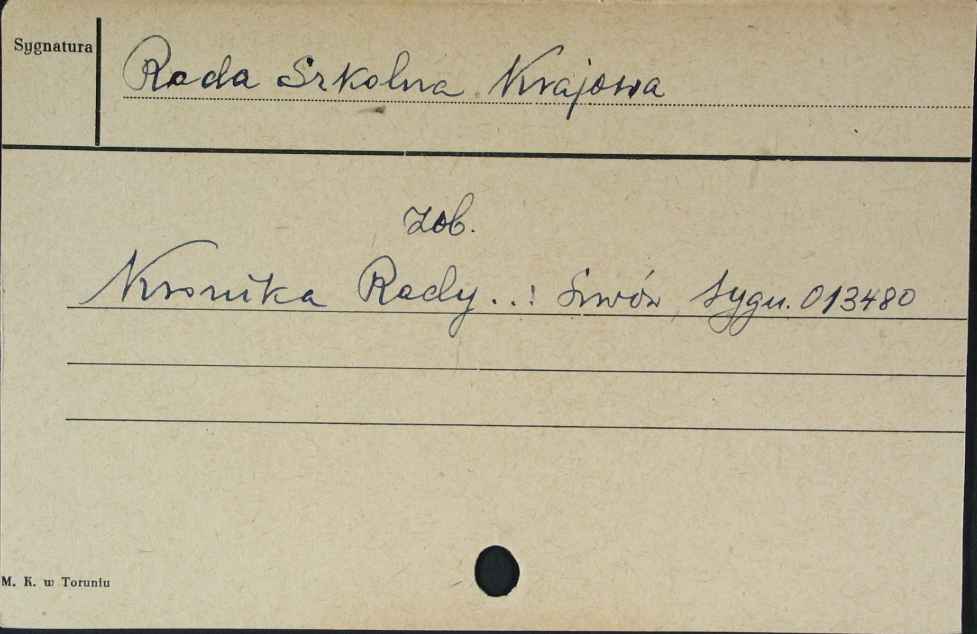 Sygnatura
Rada Szkolna Krajowa
zob.
Kronika Rady..: Lwów, sygn. 013480
M. K. w Toruniu